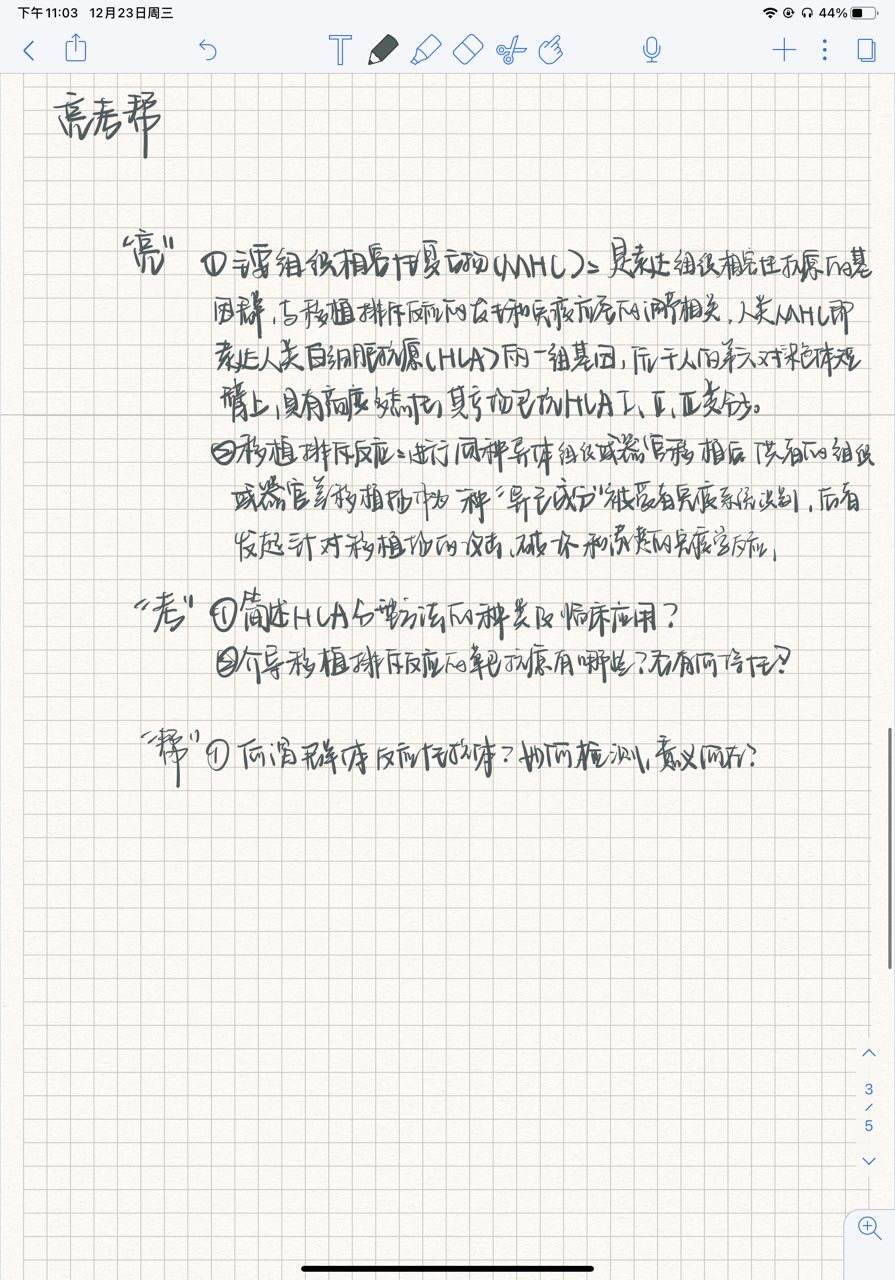 下午11:03 12月23日周三
44%
亮考帮
“亮” ①主要组织相容性复合物(MHC)：是表达组织相容性抗原的基
因群,与移植排斥反应的发生和免疫应答的调节相关.人类MHC即
表达人类白细胞抗原(HLA)的一组基因,位于人的第六对染色体短
臂上,具有高度多态性,其产物包括HLA I、II、III类分子。
②移植排斥反应：进行同种异体组织或器官移植后 供者的组织
或器官等移植物作为一种“异己成分”被受者免疫系统识别,后者
发起针对移植物的攻击、破坏和清除的免疫学反应,
“考” ①简述HLA分型方法的种类及临床应用?
②介导移植排斥反应的靶抗原有哪些?各有何特性?
“帮” ①何谓群体反应性抗体?如何检测,意义何在?
3
/
5